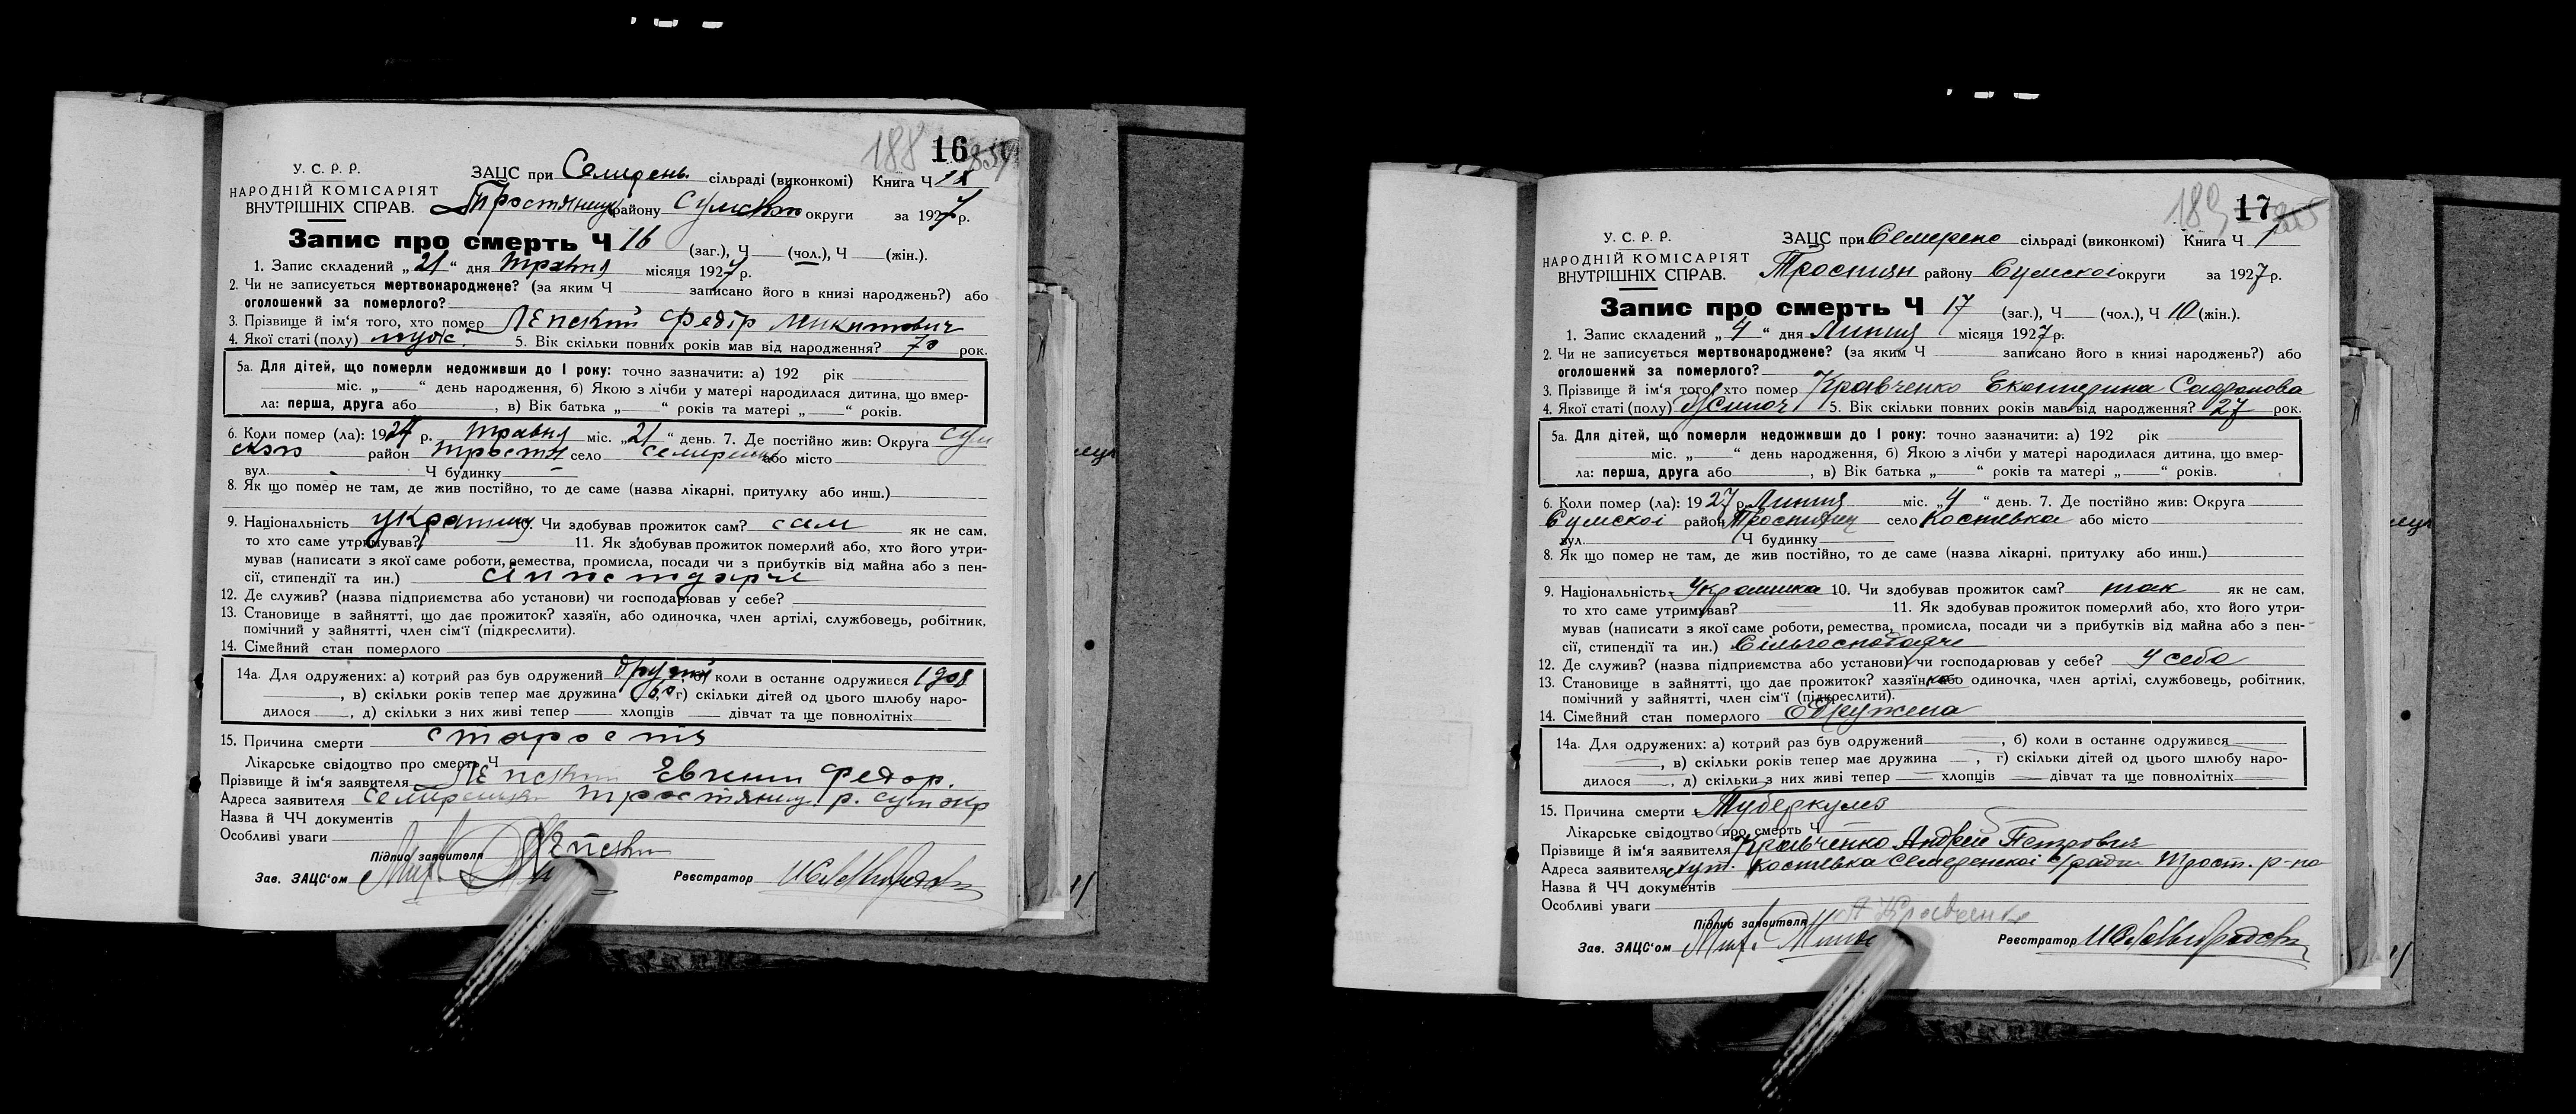 188 16
У. С. Р. Р.
НАРОДНІЙ КОМІСАРІЯТ
ВНУТРІШНІХ СПРАВ.
ЗАЦС при Семирень. сільраді (виконкомі) Книга Ч
Тростянец району Сумск округи за 1927 р.
Запис про смерть Ч 16 (заг.), Ч (чол.), Ч (жін.).
1. Запис складений „21“ дня травня місяця 1927 р.
2. Чи не записується мертвонароджене? (за яким Ч записано його в книзі народжень?) або
оголошений за померлого?
3. Прізвище й ім'я того, хто помер Лепский Федір Микитович
4. Якої статі (полу) муж. 5. Вік скільки повних років мав від народження? 70 рок.
5а. Для дітей, що померли недоживши до 1 року: точно зазначити: а) 192 рік
міс. „ “ день народження, б) Якою з лічби у матері народилася дитина, що вмер-
ла: перша, друга або , в) Вік батька „ “ років та матері „ “ років.
6. Коли помер (ла): 1927 р. травня міс. „21“ день. 7. Де постійно жив: Округа Сум
район Тростян село або місто
вул. Ч будинку
8. Як що помер не там, де жив постійно, то де саме (назва лікарні, притулку або инш.)
9. Національність 10. Чи здобував прожиток сам? сам як не сам,
то хто саме утримував? 11. Як здобував прожиток померлий або, хто його утри-
мував (написати з якої саме роботи, ремества, промисла, посади чи з прибутків від майна або з пен-
сії, стипендії та ин.)
12. Де служив? (назва підприємства або установи) чи господарював у себе?
13. Становище в зайнятті, що дає прожиток? хазяїн, або одиночка, член артілі, службовець, робітник,
помічний у зайнятті, член сім'ї (підкреслити).
14. Сімейний стан померлого
14а. Для одружених: а) котрий раз був одружений другий коли в останнє одружився 1908
, в) скільки років тепер має дружина 60, г) скільки дітей од цього шлюбу наро-
дилося , д) скільки з них живі тепер хлопців дівчат та ще повнолітніх
15. Причина смерти старость
Лікарське свідоцтво про смерть Ч
Прізвище й ім'я заявителя Лепский Евгени Федор.
Адреса заявителя Тростянец. р. Сум окр
Назва й ЧЧ документів
Особливі уваги
Підпис заявителя Лепский
Зав. ЗАЦС'ом Реєстратор
189 17
У. С. Р. Р.
НАРОДНІЙ КОМІСАРІЯТ
ВНУТРІШНІХ СПРАВ.
ЗАЦС при Семерено сільраді (виконкомі) Книга Ч 1
Тростян району Сумскоі округи за 1927 р.
Запис про смерть Ч 17 (заг.), Ч (чол.), Ч 10 (жін.).
1. Запис складений „4“ дня Липня місяця 1927 р.
2. Чи не записується мертвонароджене? (за яким Ч записано його в книзі народжень?) або
оголошений за померлого?
3. Прізвище й ім'я того, хто помер Кравченко Екатерина Сафронова
4. Якої статі (полу) 5. Вік скільки повних років мав від народження? 27 рок.
5а. Для дітей, що померли недоживши до 1 року: точно зазначити: а) 192 рік
міс. „ “ день народження, б) Якою з лічби у матері народилася дитина, що вмер-
ла: перша, друга або , в) Вік батька „ “ років та матері „ “ років.
6. Коли помер (ла): 1927 р. Липня міс. „4“ день. 7. Де постійно жив: Округа
Сумскоі район Тростянец село Костевка або місто
вул. Ч будинку
8. Як що помер не там, де жив постійно, то де саме (назва лікарні, притулку або инш.)
9. Національність Украинка 10. Чи здобував прожиток сам? так як не сам,
то хто саме утримував? 11. Як здобував прожиток померлий або, хто його утри-
мував (написати з якої саме роботи, ремества, промисла, посади чи з прибутків від майна або з пен-
сії, стипендії та ин.) Сільгосподарче
12. Де служив? (назва підприємства або установи) чи господарював у себе? у себе
13. Становище в зайнятті, що дає прожиток? хазяїн, або одиночка, член артілі, службовець, робітник,
помічний у зайнятті, член сім'ї (підкреслити).
14. Сімейний стан померлого Одружена
14а. Для одружених: а) котрий раз був одружений , б) коли в останнє одружився
, в) скільки років тепер має дружина , г) скільки дітей од цього шлюбу наро-
дилося , д) скільки з них живі тепер хлопців дівчат та ще повнолітніх
15. Причина смерти Туберкулез
Лікарське свідоцтво про смерть Ч
Прізвище й ім'я заявителя Кравченко Андрей Петрович
Адреса заявителя хут. Костевка Семеренскоі с/ради Трост. р-на
Назва й ЧЧ документів
Особливі уваги
Підпис заявителя А Кравченко
Зав. ЗАЦС'ом Реєстратор